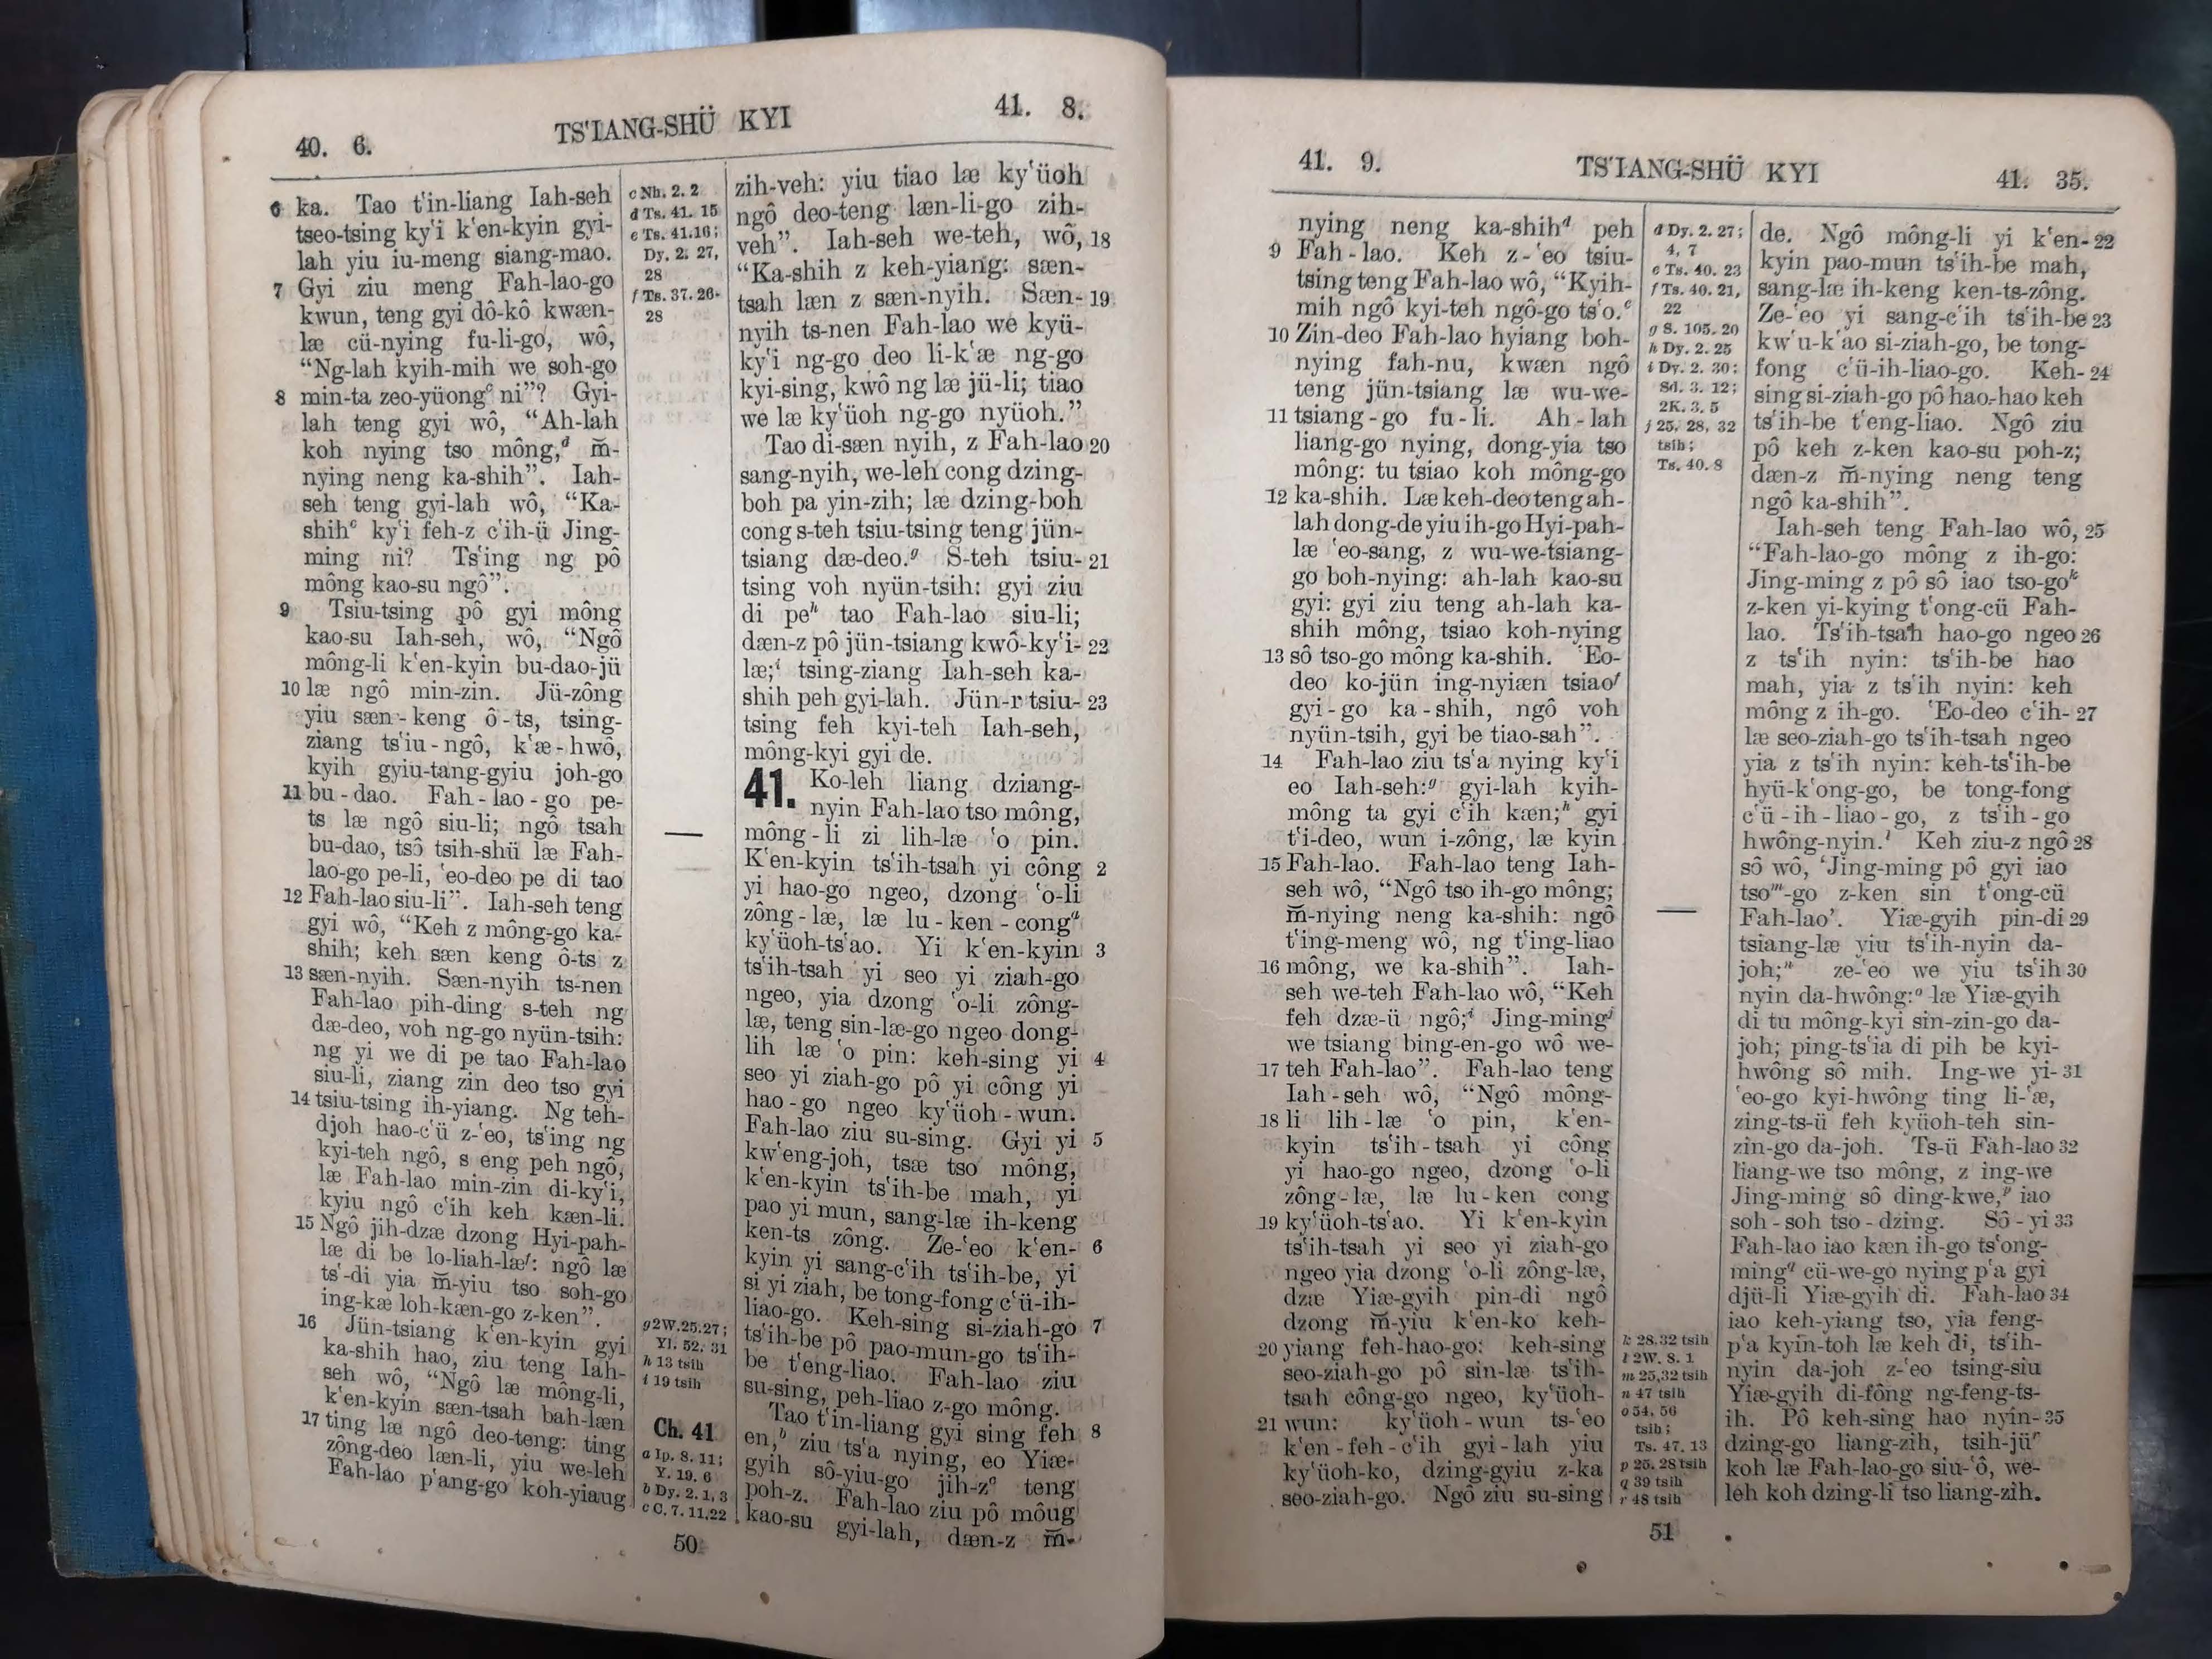 40. 6.
TS‘IANG-SHÜ KYI
41. 8.
6 ka. Tao t‘in-liang Iah-seh
tseo-tsing ky‘i k‘en-kyin gyi-
lah yiu iu-meng siang-mao.
7 Gyi ziu meng Fah-lao-go
kwun, teng gyi dô-kô kwæn-
læ cü-nying fu-li-go, wô,
“Ng-lah kyih-mih we soh-go
8 min-ta zeo-yüong c ni”? Gyi-
lah teng gyi wô, “Ah-lah
koh nying tso mông, d m̄-
nying neng ka-shih”. Iah-
seh teng gyi-lah wô, “Ka-
shih e ky‘i feh-z c‘ih-ü Jing-
ming ni? Ts‘ing ng pô
mông kao-su ngô”.
9 Tsiu-tsing pô gyi mông
kao-su Iah-seh, wô, “Ngô
mông-li k‘en-kyin bu-dao-jü
10 læ ngô min-zin. Jü-zông
yiu sæn-keng ô-ts, tsing-
ziang ts‘iu-ngô, k‘æ-hwô,
kyih gyiu-tang-gyiu joh-go
11 bu-dao. Fah-lao-go pe-
ts læ ngô siu-li; ngô tsah
bu-dao, tsô tsih-shü læ Fah-
lao-go pe-li, ‘eo-deo pe di tao
12 Fah-lao siu-li”. Iah-seh teng
gyi wô, “Keh z mông-go ka-
shih; keh sæn keng ô-ts z
13 sæn-nyih. Sæn-nyih ts-nen
Fah-lao pih-ding s-teh ng
dæ-deo, voh ng-go nyün-tsih:
ng yi we di pe tao Fah-lao
siu-li, ziang zin deo tso gyi
14 tsiu-tsing ih-yiang. Ng teh-
djoh hao-c‘ü z-‘eo, ts‘ing ng
kyi-teh ngô, s eng peh ngô,
læ Fah-lao min-zin di-ky‘i,
kyiu ngô c‘ih keh kæn-li.
15 Ngô jih-dzæ dzong Hyi-pah-
læ di be lo-liah-læ f: ngô læ
ts‘-di yia m̄-yiu tso soh-go
ing-kæ loh-kæn-go z-ken”.
16 Jün-tsiang k‘en-kyin gyi
ka-shih hao, ziu teng Iah-
seh wô, “Ngô læ mông-li,
k‘en-kyin sæn-tsah bah-læn
17 ting læ ngô deo-teng: ting
zông-deo læn-li, yiu we-leh
Fah-lao p‘ang-go koh-yiang
c Nh. 2. 2
d Ts. 41. 15
e Ts. 41.16;
Dy. 2. 27,
28
f Ts. 37. 26-
28
g 2W.25.27;
Yl. 52. 31
h 13 tsih
i 19 tsih
Ch. 41
a Ip. 8. 11;
Y. 19. 6
b Dy. 2. 1, 3
c C. 7. 11,22
zih-veh: yiu tiao læ ky‘üoh
ngô deo-teng læn-li-go zih-
veh”. Iah-seh we-teh, wô, 18
“Ka-shih z keh-yiang: sæn-
tsah læn z sæn-nyih. Sæn- 19
nyih ts-nen Fah-lao we kyü-
ky‘i ng-go deo li-k‘æ ng-go
kyi-sing, kwô ng læ jü-li; tiao
we læ ky‘üoh ng-go nyüoh.”
Tao di-sæn nyih, z Fah-lao 20
sang-nyih, we-leh cong dzing-
boh pa yin-zih; læ dzing-boh
cong s-teh tsiu-tsing teng jün-
tsiang dæ-deo. g S-teh tsiu- 21
tsing voh nyün-tsih: gyi ziu
di pe h tao Fah-lao siu-li;
dæn-z pô jün-tsiang kwô-ky‘i- 22
læ; i tsing-ziang Iah-seh ka-
shih peh gyi-lah. Jün-r tsiu- 23
tsing feh kyi-teh Iah-seh,
mông-kyi gyi de.
41. Ko-leh liang dziang-
nyin Fah-lao tso mông,
mông-li zi lih-læ ‘o pin.
K‘en-kyin ts‘ih-tsah yi công 2
yi hao-go ngeo, dzong ‘o-li
zông-læ, læ lu-ken-cong a
ky‘üoh-ts‘ao. Yi k‘en-kyin 3
ts‘ih-tsah yi seo yi ziah-go
ngeo, yia dzong ‘o-li zông-
læ, teng sin-læ-go ngeo dong-
lih læ ‘o pin: keh-sing yi 4
seo yi ziah-go pô yi công yi
hao-go ngeo ky‘üoh-wun.
Fah-lao ziu su-sing. Gyi yi 5
kw‘eng-joh, tsæ tso mông,
k‘en-kyin ts‘ih-be mah, yi
pao yi mun, sang-læ ih-keng
ken-ts zông. Ze-‘eo k‘en- 6
kyin yi sang-c‘ih ts‘ih-be, yi
si yi ziah, be tong-fong c‘ü-ih-
liao-go. Keh-sing si-ziah-go 7
ts‘ih-be pô pao-mun-go ts‘ih-
be t‘eng-liao. Fah-lao ziu
su-sing, peh-liao z-go mông.
Tao t‘in-liang gyi sing feh 8
en, b ziu ts‘a nying, eo Yiæ-
gyih sô-yiu-go jih-z c teng
poh-z. Fah-lao ziu pô mông
kao-su gyi-lah, dæn-z m̄-
50
41. 9.
TS‘IANG-SHÜ KYI
41. 35.
nying neng ka-shih d peh
9 Fah-lao. Keh z-‘eo tsiu-
tsing teng Fah-lao wô, “Kyih-
mih ngô kyi-teh ngô-go ts‘o. e
10 Zin-deo Fah-lao hyiang boh-
nying fah-nu, kwæn ngô
teng jün-tsiang læ wu-we-
11 tsiang-go fu-li. Ah-lah
liang-go nying, dong-yia tso
mông: tu tsiao koh mông-go
12 ka-shih. Læ keh-deo teng ah-
lah dong-de yiu ih-go Hyi-pah-
læ ‘eo-sang, z wu-we-tsiang-
go boh-nying: ah-lah kao-su
gyi: gyi ziu teng ah-lah ka-
shih mông, tsiao koh-nying
13 sô tso-go mông ka-shih. ‘Eo-
deo ko-jün ing-nyiæn tsiao f
gyi-go ka-shih, ngô voh
nyün-tsih, gyi be tiao-sah”.
14 Fah-lao ziu ts‘a nying ky‘i
eo Iah-seh: g gyi-lah kyih-
mông ta gyi c‘ih kæn; h gyi
t‘i-deo, wun i-zông, læ kyin
15 Fah-lao. Fah-lao teng Iah-
seh wô, “Ngô tso ih-go mông;
m̄-nying neng ka-shih: ngô
t‘ing-meng wô, ng t‘ing-liao
16 mông, we ka-shih”. Iah-
seh we-teh Fah-lao wô, “Keh
feh dzæ-ü ngô; i Jing-ming j
we tsiang bing-en-go wô we-
17 teh Fah-lao”. Fah-lao teng
Iah-seh wô, “Ngô mông-
18 li lih-læ ‘o pin, k‘en-
kyin ts‘ih-tsah yi công
yi hao-go ngeo, dzong ‘o-li
zông-læ, læ lu-ken cong
19 ky‘üoh-ts‘ao. Yi k‘en-kyin
ts‘ih-tsah yi seo yi ziah-go
ngeo yia dzong ‘o-li zông-læ,
dzæ Yiæ-gyih pin-di ngô
dzong m̄-yiu k‘en-ko keh-
20 yiang feh-hao-go: keh-sing
seo-ziah-go pô sin-læ ts‘ih-
tsah công-go ngeo, ky‘üoh-
21 wun: ky‘üoh-wun ts-‘eo
k‘en-feh-c‘ih gyi-lah yiu
ky‘üoh-ko, dzing-gyiu z-ka
seo-ziah-go. Ngô ziu su-sing
d Dy. 2. 27;
4, 7
e Ts. 40. 23
f Ts. 40. 21,
22
g S. 105. 20
h Dy. 2. 25
i Dy. 2. 30;
Sd. 3. 12;
2K. 3. 5
j 25, 28, 32
tsih;
Ts. 40. 8
k 28,32 tsih
l 2W. 8. 1
m 25,32 tsih
n 47 tsih
o 54, 56
tsih;
Ts. 47. 13
p 25. 28 tsih
q 39 tsih
r 48 tsih
de. Ngô mông-li yi k‘en- 22
kyin pao-mun ts‘ih-be mah,
sang-læ ih-keng ken-ts-zông.
Ze-‘eo yi sang-c‘ih ts‘ih-be 23
kw‘u-k‘ao si-ziah-go, be tong-
fong c‘ü-ih-liao-go. Keh- 24
sing si-ziah-go pô hao-hao keh
ts‘ih-be t‘eng-liao. Ngô ziu
pô keh z-ken kao-su poh-z;
dæn-z m̄-nying neng teng
ngô ka-shih”.
Iah-seh teng Fah-lao wô, 25
“Fah-lao-go mông z ih-go:
Jing-ming z pô sô iao tso-go k
z-ken yi-kying t‘ong-cü Fah-
lao. Ts‘ih-tsah hao-go ngeo 26
z ts‘ih nyin: ts‘ih-be hao
mah, yia z ts‘ih nyin: keh
mông z ih-go. ‘Eo-deo c‘ih- 27
læ seo-ziah-go ts‘ih-tsah ngeo
yia z ts‘ih nyin: keh-ts‘ih-be
hyü-k‘ong-go, be tong-fong
c‘ü-ih-liao-go, z ts‘ih-go
hwông-nyin. l Keh ziu-z ngô 28
sô wô, ‘Jing-ming pô gyi iao
tso m-go z-ken sin t‘ong-cü
Fah-lao’. Yiæ-gyih pin-di 29
tsiang-læ yiu ts‘ih-nyin da-
joh; n ze-‘eo we yiu ts‘ih 30
nyin da-hwông: o læ Yiæ-gyih
di tu mông-kyi sin-zin-go da-
joh; ping-ts‘ia di pih be kyi-
hwông sô mih. Ing-we yi- 31
‘eo-go kyi-hwông ting li-‘æ,
zing-ts-ü feh kyüoh-teh sin-
zin-go da-joh. Ts-ü Fah-lao 32
liang-we tso mông, z ing-we
Jing-ming sô ding-kwe, p iao
soh-soh tso-dzing. Sô-yi 33
Fah-lao iao kæn ih-go ts‘ong-
ming q cü-we-go nying p‘a gyi
djü-li Yiæ-gyih di. Fah-lao 34
iao keh-yiang tso, yia feng-
p‘a kyin-toh læ keh di, ts‘ih-
nyin da-joh z-‘eo tsing-siu
Yiæ-gyih di-fông ng-feng-ts-
ih. Pô keh-sing hao nyin- 35
dzing-go liang-zih, tsih-jü r
koh læ Fah-lao-go siu-‘ô, we-
leh koh dzing-li tso liang-zih.
51